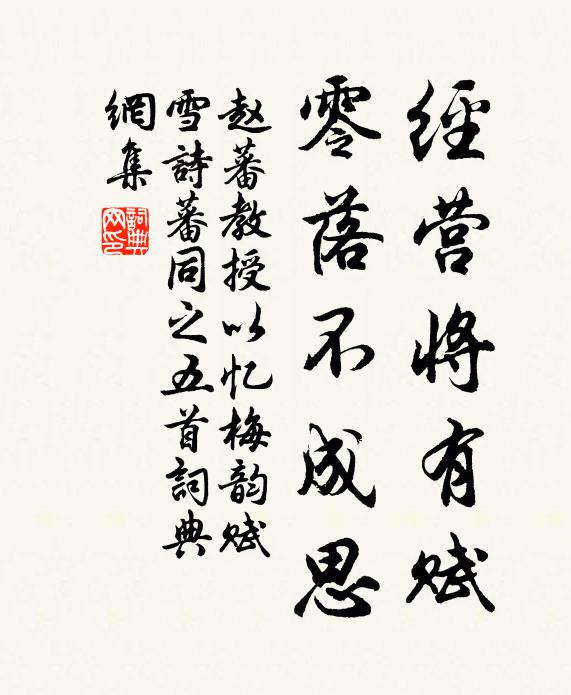 經营将有赋
零落不成思
赵蕃教授以忆梅韵赋
雪詩蕃同之五首詞典
網集
詞典网印